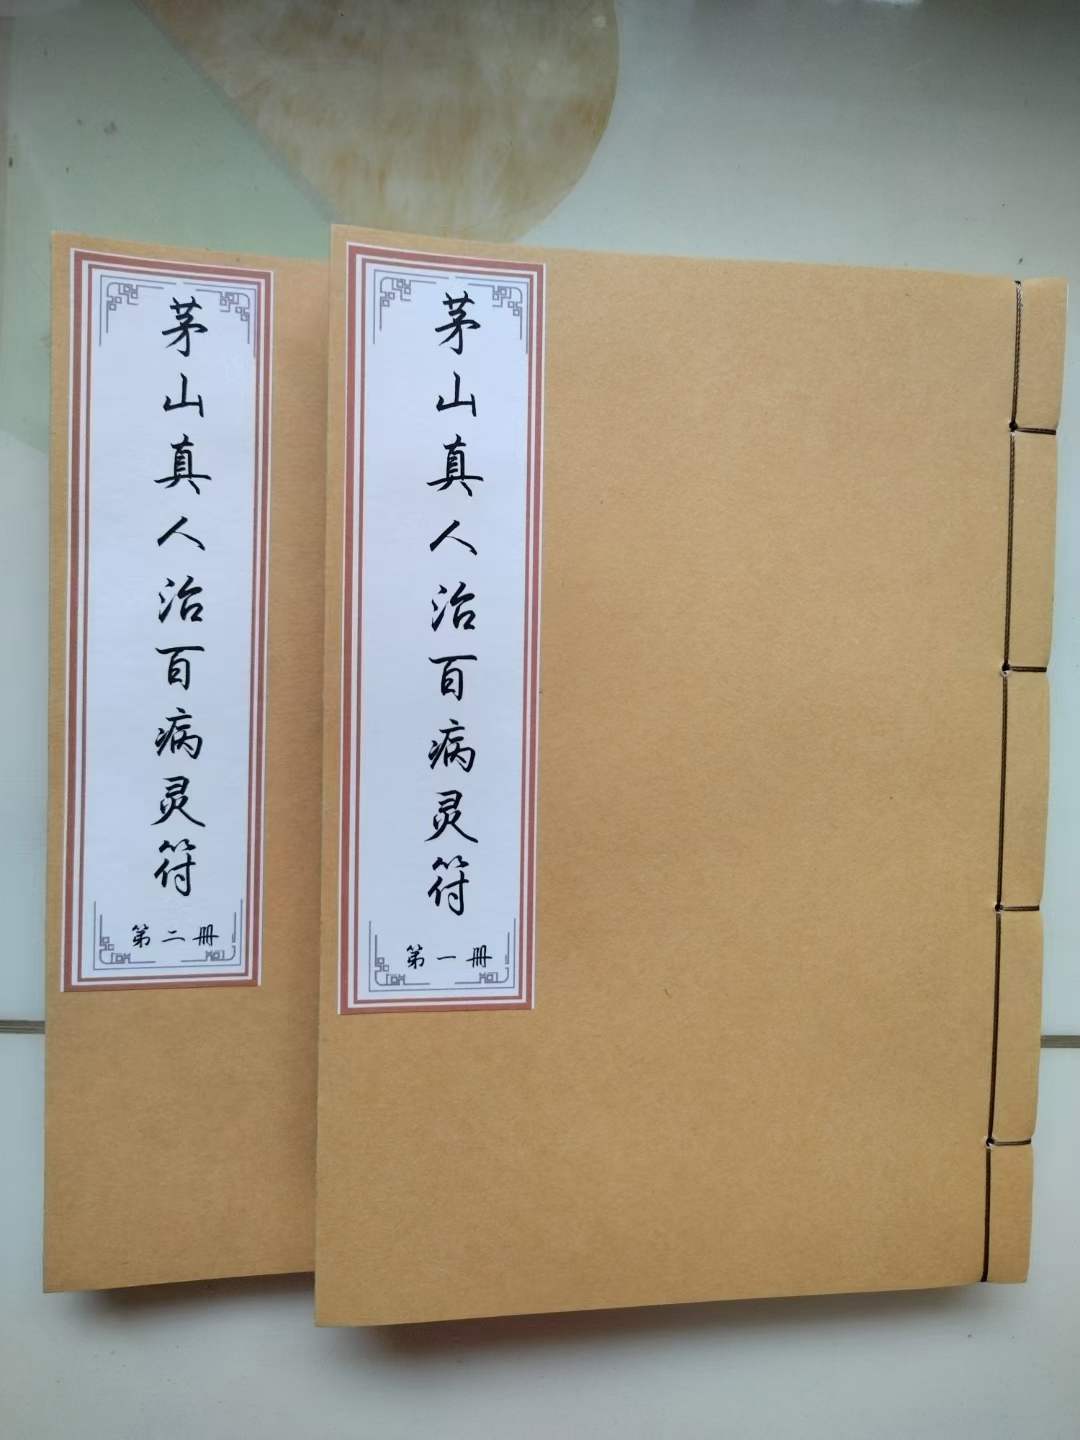 茅山真人治百病灵符
第一册
茅山真人治百病灵符
第二册